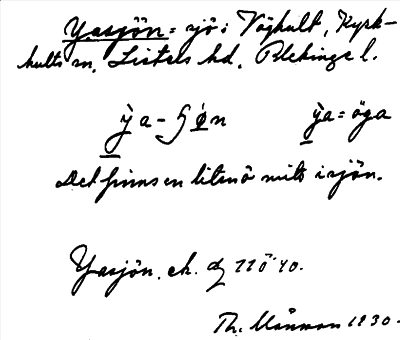 Yasjön = sjö i Vöghult, Kyrk-
hults sn. Listers hd. Blekinge l.
ỳa - ʃøn ỳa = öga
Det finns en liten ö mitt i sjön.
Yasjön. ek. 110 40.
Th. Månsson 1930.